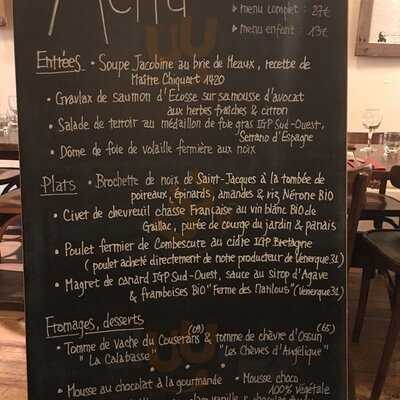 Menu
▹ menu complet : 27€
▹ menu enfant : 13€
Entrées • Soupe Jacobine au brie de Meaux, recette de
Maître Chiquart 1420
• Gravlax de saumon d'Ecosse sur sa mousse d'avocat
aux herbes fraîches & citron
• Salade de terroir au médaillon de foie gras IGP Sud-Ouest,
Serrano d'Espagne
• Dôme de foie de volaille fermière aux noix
Plats • Brochette de noix de Saint-Jacques à la tombée de
poireaux, épinards, amandes & riz Nérone BIO
• Civet de chevreuil chasse Française au vin blanc BIO de
Gaillac, purée de courge du jardin & panais
• Poulet fermier de Combescure au cidre IGP Bretagne
(poulet acheté directement de notre producteur de Venerque 31)
• Magret de canard IGP Sud-Ouest, sauce au sirop d'Agave
& framboises BIO "Ferme des Matilous" (Venerque 31)
Fromages, desserts
• Tomme de vache du Couserans (09) & tomme de chèvre d'Ossun (65)
"La Calabasse" "Les Chèvres d'Angélique"
• Mousse au chocolat à la gourmande • Mousse choco
100% végétale
vanille & chocolat